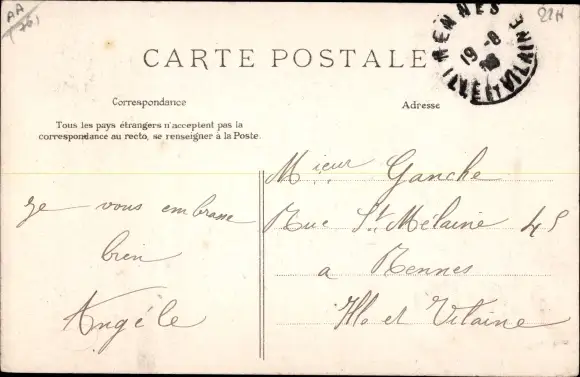 AA
(76)
22H
RENNES
19 - 8
ILLE ET VILAINE
CARTE POSTALE
Correspondance
Tous les pays étrangers n'acceptent pas la
correspondance au recto, se renseigner à la Poste.
Adresse
je vous embrasse
bien
Angéle
Mieur Ganche
Rue St Mélaine 45
a Rennes
Ille et Vilaine